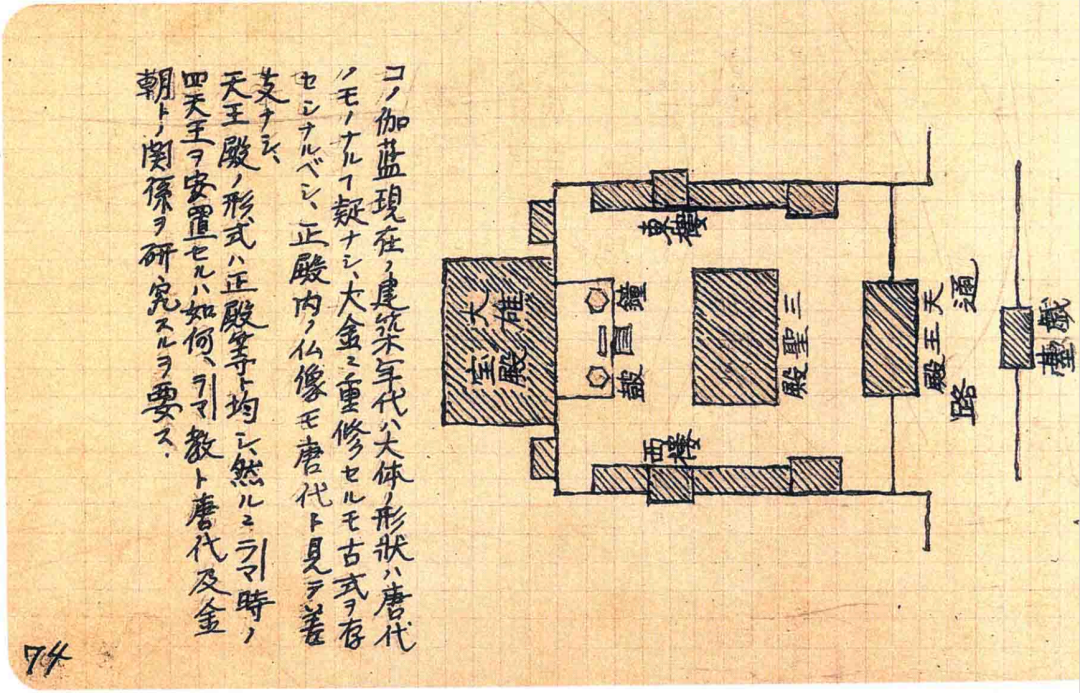 コノ伽藍現在ノ建築年代ハ大体ノ形状ハ唐代
ノモノナルヿ疑ナシ、大金ニ重修セルモ古式ヲ存
セシナルベシ、正殿内ノ仏像モ唐代ト見テ差
支ナシ、
天王殿ノ形式ハ正殿等ト均シ、然ルニラマ時ノ
四天王ヲ安置セルハ如何、ラマ教ト唐代及金
朝トノ関係ヲ研究スルヲ要ス.
戯臺
通路
天王殿
三聖殿
東楼
西楼
鐘
鼓
大雄宝殿
74